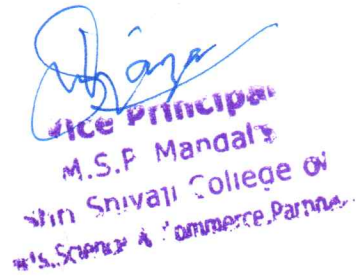 Vice Principal
M.S.P Mandal's
Shri Shivaji College of
Arts, Science & Commerce, Parbhani